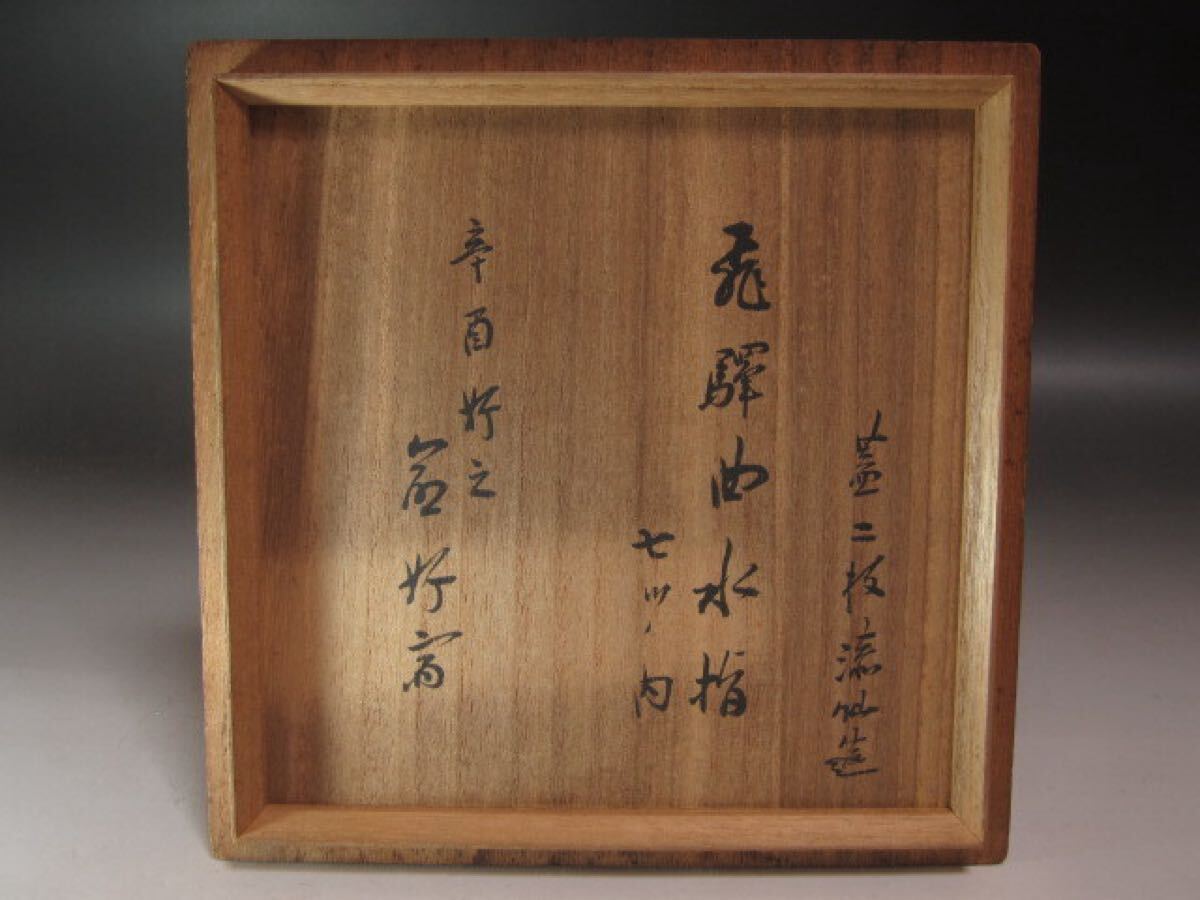 蓋二枚添仙籩
飛驒曲水指
七ツノ内
辛酉好之
宗好斎